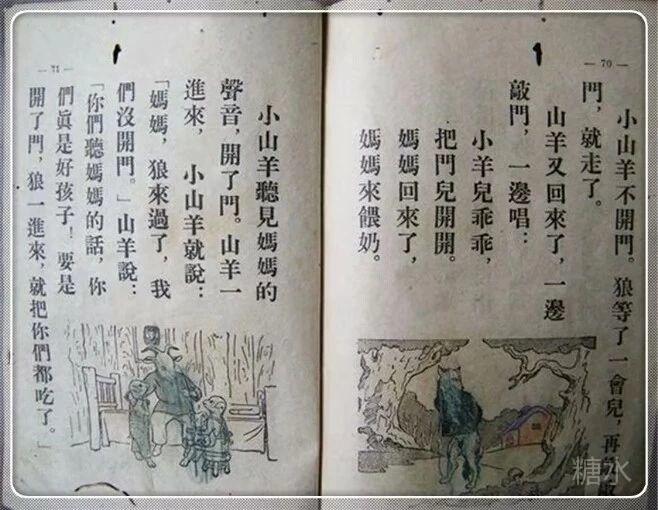 — 70 —
小山羊不開門。狼等了一會兒，再
門，就走了。
山羊又回來了，一邊
敲門，一邊唱：
小羊兒乖乖，
把門兒開開。
媽媽回來了，
媽媽來餵奶。
— 71 —
小山羊聽見媽媽的
聲音，開了門。山羊一
進來，小山羊就說：
「媽媽，狼來過了，我
們沒開門。」山羊說：
「你們聽媽媽的話，你
們眞是好孩子！要是
開了門，狼一進來，就把你們都吃了。」
糖水